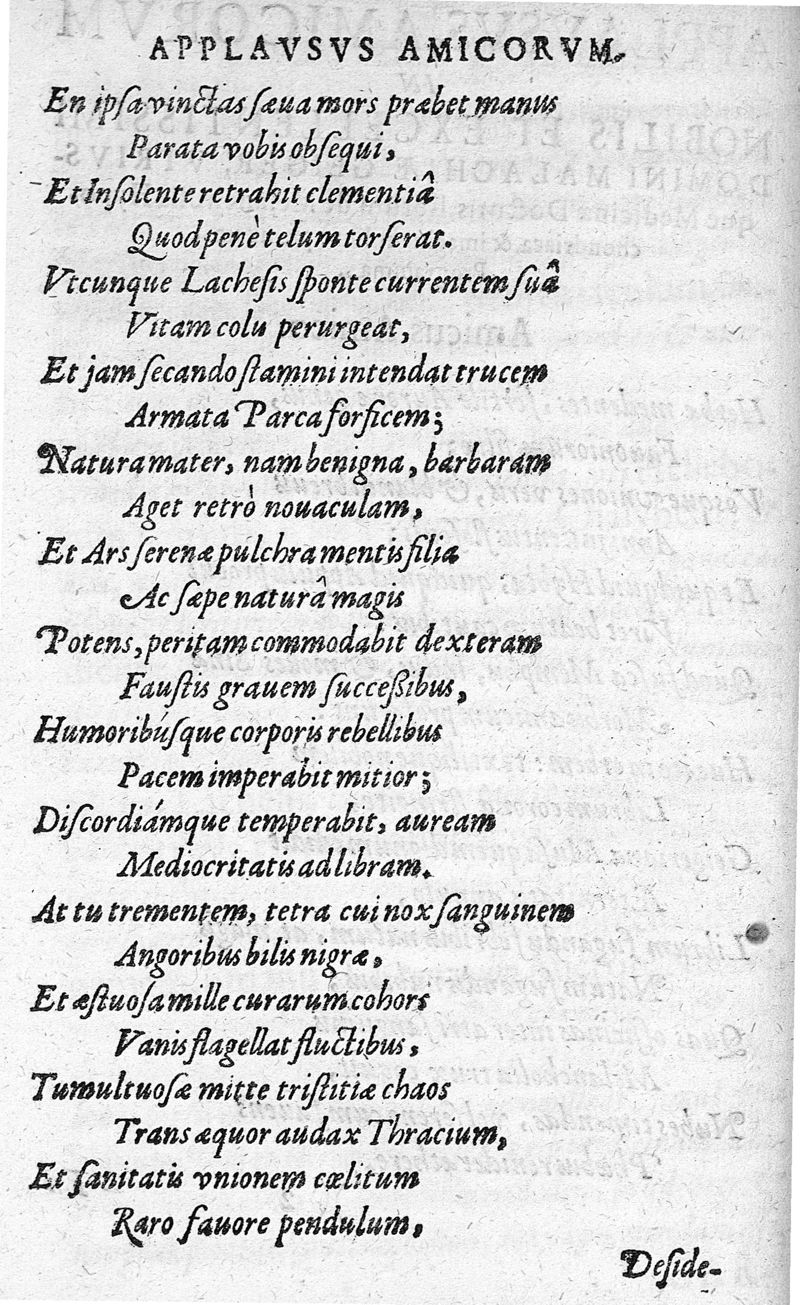 APPLAVSVS AMICORVM.
En ipſa vinctas ſæua mors præbet manus
Parata vobis obſequi,
Et Inſolente retrahit clementiâ
Quod penè telum torſerat.
Vtcunque Lacheſis ſponte currentem ſuâ
Vitam colu perurgeat,
Et jam ſecando ſtamini intendat trucem
Armata Parca forficem;
Natura mater, nam benigna, barbaram
Aget retrò nouaculam,
Et Ars ſerenæ pulchra mentis filia
Ac ſæpe naturâ magis
Potens, peritam commodabit dexteram
Fauſtis grauem ſucceßibus,
Humoribúſque corporis rebellibus
Pacem imperabit mitior;
Diſcordiámque temperabit, auream
Mediocritatis ad libram.
At tu trementem, tetra cui nox ſanguinem
Angoribus bilis nigræ,
Et æſtuoſa mille curarum cohors
Vanis flagellat fluctibus,
Tumultuoſæ mitte triſtitiæ chaos
Trans æquor audax Thracium,
Et ſanitatis vnionem cœlitum
Raro fauore pendulum,
Deſide-